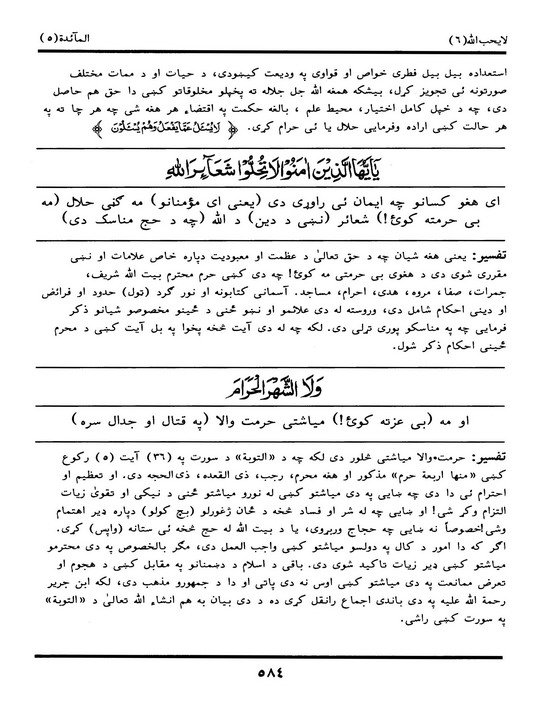 لایحب الله(٦)
المآئدة(٥)
استعداده بیل بیل فطری خواص او قواوی په ودیعت کیښودی، د حیات او د ممات مختلف
صورتونه ئی تجویز کړل، بیشکه همغه الله جل جلاله ته پخپلو مخلوقاتو کښی دا حق هم حاصل
دی، چه د خپل کامل اختیار، محیط علم ، بالغه حکمت په اقتضاء هر هغه شی چه هر چا ته په
هر حالت کښی اراده وفرمایی حلال یا ئی حرام کړی. ﴿ لَا يُسْئَلُ عَمَّا يَفْعَلُ وَهُمْ يُسْئَلُونَ ﴾
يٰۤاَيُّهَا الَّذِيْنَ اٰمَنُوْا لَا تُحِلُّوْا شَعَآئِرَ اللّٰهِ
ای هغو کسانو چه ایمان ئی راوړی دی (یعنی ای مؤمنانو) مه ګڼی حلال (مه
بی حرمته کوئ!) شعائر (نښی د دین) د الله (چه د حج مناسک دی)
تفسیر: یعنی هغه شیان چه د حق تعالیٰ د عظمت او معبودیت دپاره خاص علامات او نښی
مقرری شوی دی د هغوی بی حرمتی مه کوئ! چه دی کښی حرم محترم بیت الله شریف،
جمرات، صفا، مروه، هدی، احرام، مساجد. آسمانی کتابونه او نور ګرد (ټول) حدود او فرائض
او دینی احکام شامل دی، وروسته له دی علائمو او نښو ځنی د ځینو مخصوصو شیانو ذکر
فرمایی چه په مناسکو پوری تړلی دی. لکه چه له دی آیت څخه پخوا په بل آیت کښی د محرم
ځینی احکام ذکر شول.
وَلَا الشَّهْرَ الْحَرَامَ
او مه (بی عزته کوئ!) میاشتی حرمت والا (په قتال او جدال سره)
تفسیر: حرمت والا میاشتی څلور دی لکه چه د «التوبة» د سورت په (٣٦) آیت (٥) رکوع
کښی «منها اربعة حرم» مذکور او هغه محرم، رجب، ذی القعده، ذی الحجه دی. او تعظیم او
احترام ئی دا دی چه ښایی په دی میاشتو کښی له نورو میاشتو ځنی د نیکی او تقویٰ زیات
التزام وکړ شی! او ښایی چه له شر او فساد څخه د ځان ژغورلو (بچ کولو) دپاره ډیر اهتمام
وشی!خصوصاً نه ښایی چه حجاج وربړوی، یا د بیت الله له حج څخه ئی ستانه (واپس) کړی.
اګر که دا امور د کال په دولسو میاشتو کښی واجب العمل دی، مګر بالخصوص په دی محترمو
میاشتو کښی ډیر زیات تاکید شوی دی. باقی د اسلام د دښمنانو په مقابل کښی د هجوم او
تعرض ممانعت په دی میاشتو کښی اوس نه دی پاتی او دا د جمهورو مذهب دی، لکه ابن جریر
رحمة الله علیه په دی باندی اجماع رانقل کړی ده د دی بیان به هم انشاء الله تعالیٰ د «التوبة»
په سورت کښی راشی.
٥٨٤